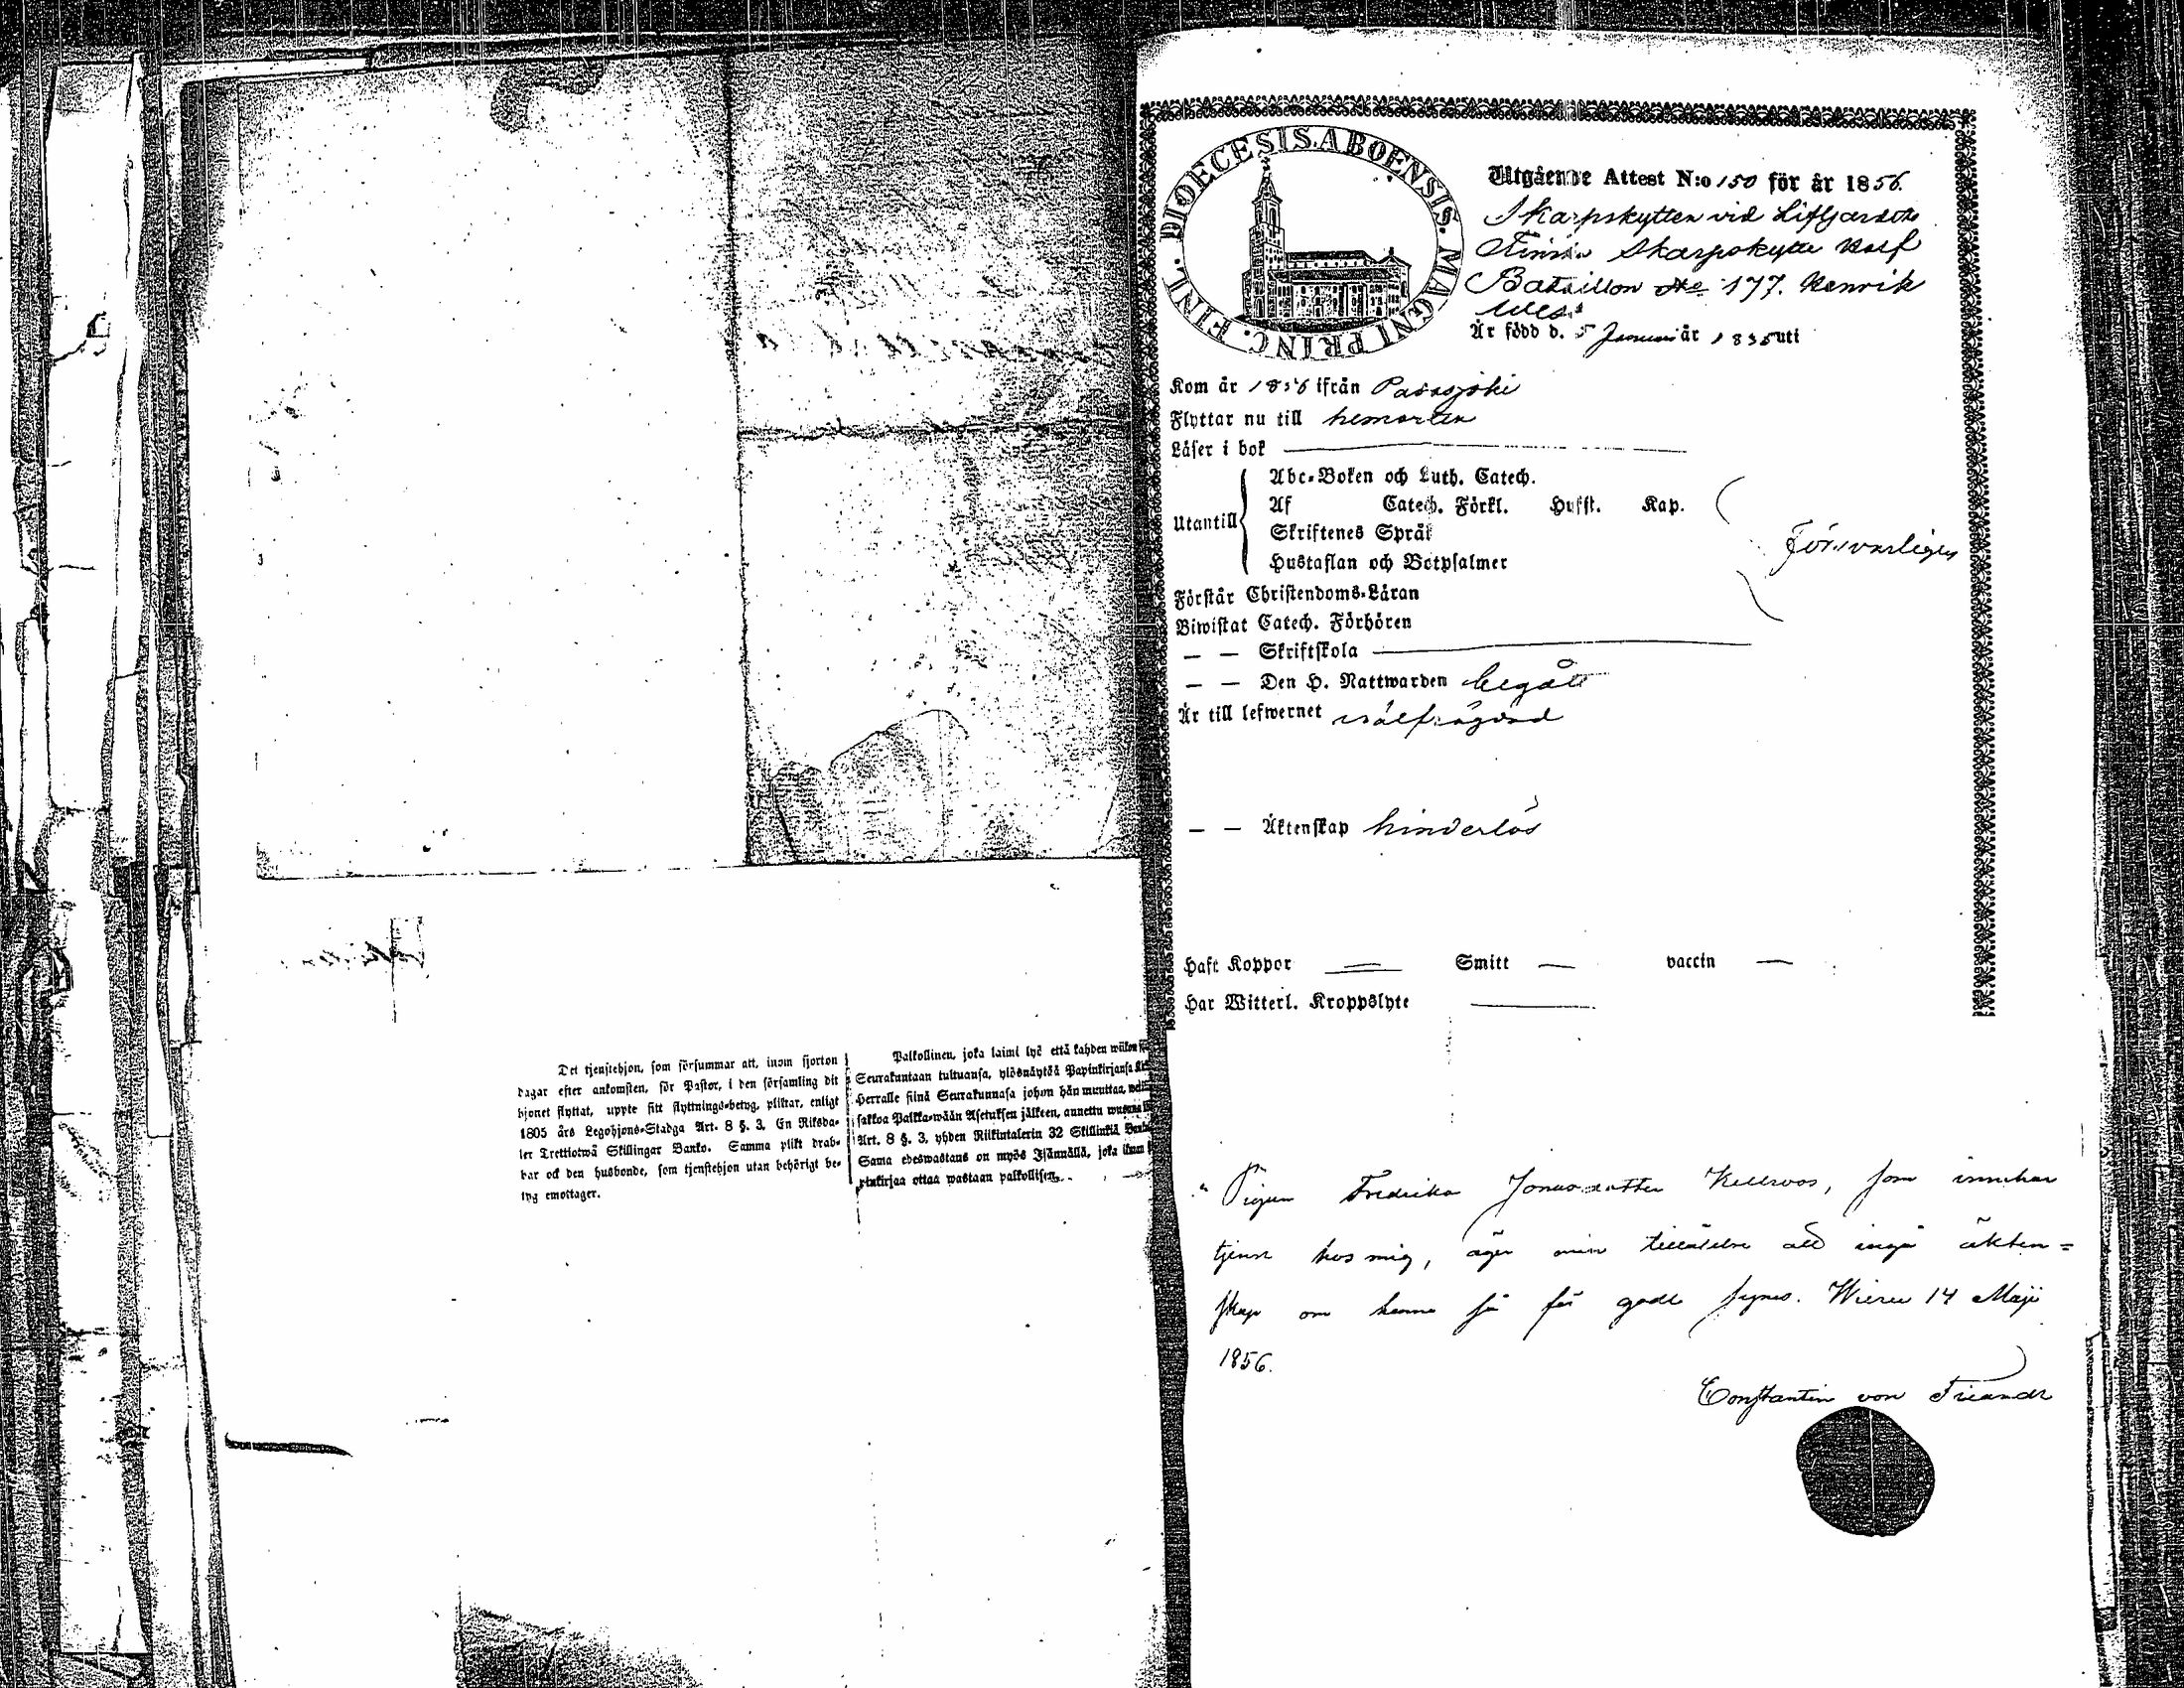 Det tjenstehjon, som försummar att, inom fjorton
dagar efter ankomsten, för Pastor, i den församling dit
hjonet flyttat, uppte sitt flyttnings-betyg, pliktar, enligt
1805 års Legohjons-Stadga Art. 8 §. 3. En Riksda-
ler Trettiotwå Skillingar Banko. Samma plikt drab-
bar ock den husbonde, som tjenstehjon utan behörigt be-
tyg emottager.
Palkollinen, joka laimi lyö että kahden wiikon
Seurakuntaan tultuansa, ylösnäyttää Papinkirjansa
Herralle siinä Seurakunnasa johon hän muuttaa,
sakkoa Palkka-wään Asetuksen jälkeen, annettu
Art. 8 §. 3, yhden Riikintalerin 32 Skillinkiä
Sama edeswastaus on myös Isännällä, joka ilman
pinkirjaa ottaa wastaan palkollisen.
DIOECESIS. ABOENSIS. MAGNI PRINC. FINL.
Utgående Attest N:o 150 för år 1856.
Skarpskytten vid Lifgardets
Finska Skarpskytte
Bataillon No 177. Henrik
Är född d. 5 Januari år 1835 uti
Kom år 1856 ifrån
Flyttar nu till hemorten
Läser i bok
Abc-Boken och Luth. Catech.
Af Catech. Förkl. Hufst. Kap.
Utantill
Skriftenes Språk
Hustaflan och Botpsalmer
Försvarligen
Förstår Christendoms-Läran
Biwistat Catech. Förhören
— — Skriftskola
— — Den H. Nattwarden begått
Är till lefwernet wälfrägdad
— — Äktenskap hinderlös
Haft Koppor — Smitt — vaccin —
Har Witterl. Kroppslyte —
Pigan Fredrika Jonasdotter, som innehar
tjenst hos mig, äger min tillåtelse att ingå äkten=
skap om henne så för godt synes. Wieru 14 Maji
1856.
Constantin von